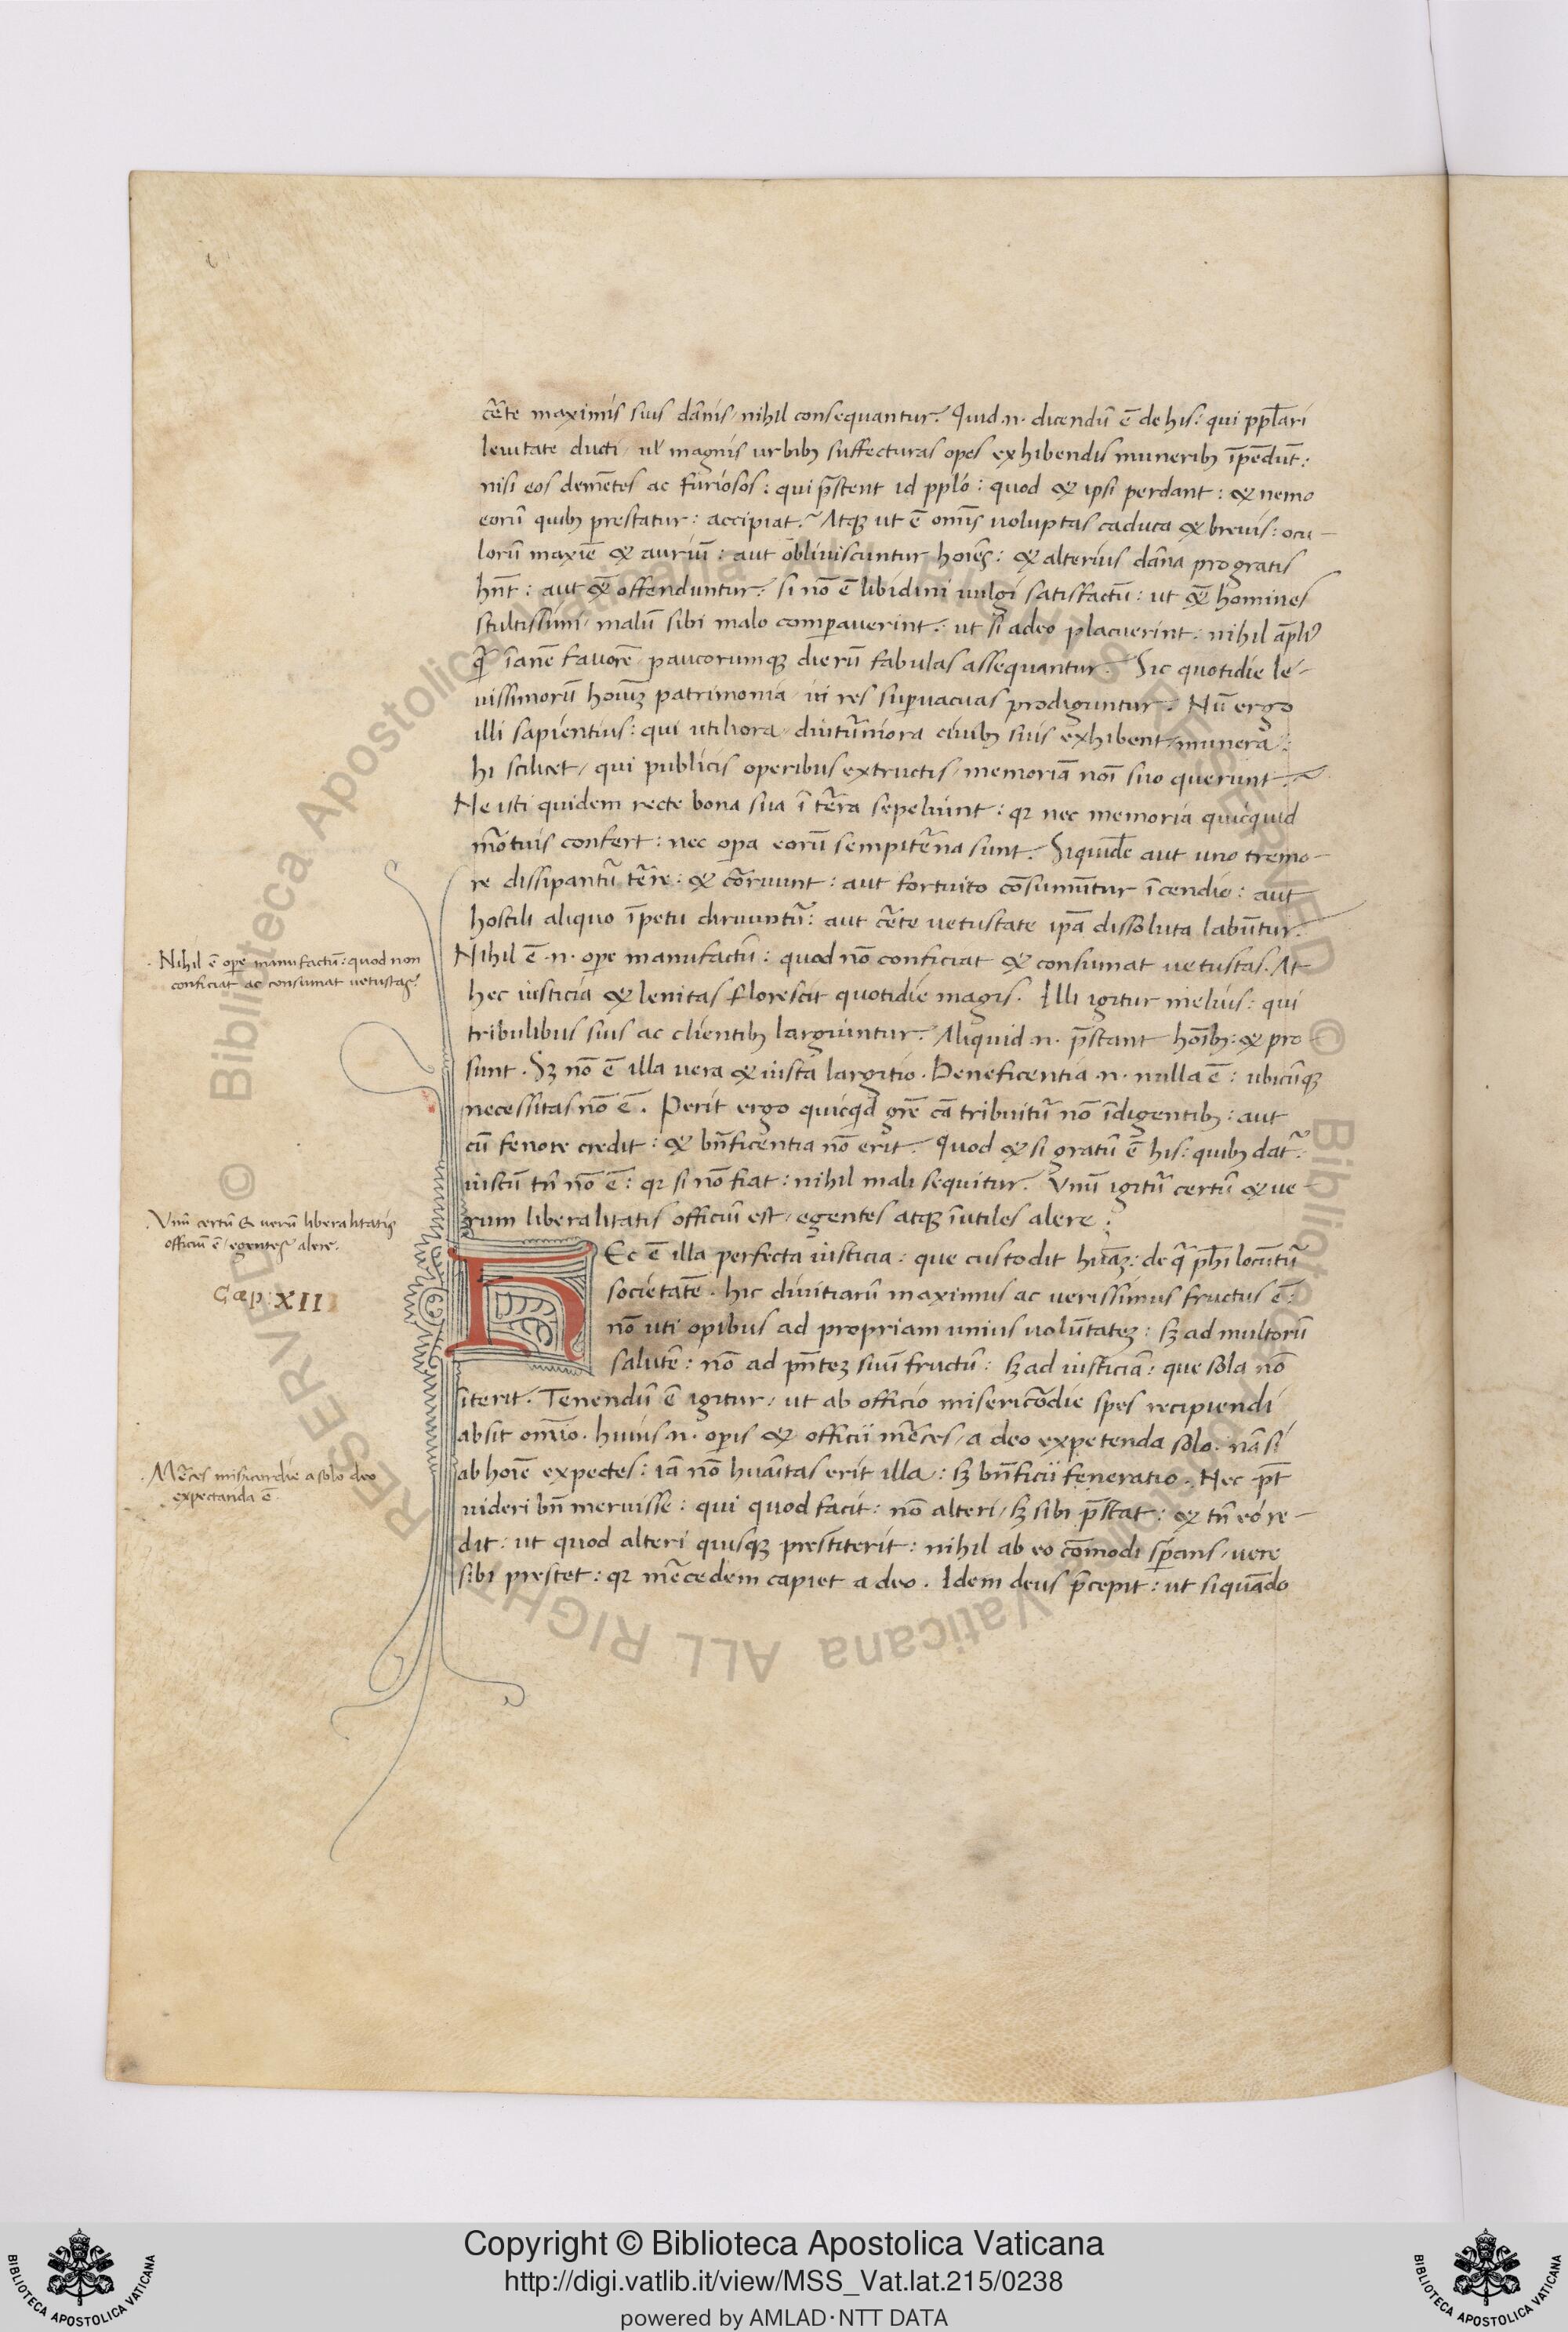 cẽte maximis suis dãnis / nihil consequantur. Quid .n. dicendũ ẽ de his: qui ppl̃ari
leuitate ducti / ul̃ magnis urbibꝫ suffecturas opes exhibendis muneribꝫ ĩpẽdũt:
nisi eos demẽtes ac furiosos: qui p̃stent id pplõ: quod & ipsi perdant: & nemo
eorũ quibꝫ prestatur: accipiat. Atqꝫ ut ẽ omĩs uoluptas caduca & breuis: ocu-
lorũ maxiẽ & auriũ: aut obliuiscuntur hoiẽs: & alterius dãna pro gratis
hñt: aut ẽt offenduntur: si nõ ẽ libidini uulgi satisfactũ: ut ẽt homines
stultissimi / malũ sibi malo comparauerint: ut si adeo placuerint: nihil apliꝰ
q̃ ĩanẽ fauorẽ / paucorumqꝫ dierũ fabulas assequantur. Sic quotidie le-
uissimorũ hoiũꝫ patrimonia / in res supuacuas prodiguntur. Nũ ergo
illi sapientius: qui utiliora / diutũniora ciuibꝫ suis exhibent munera:
hi scilicet / qui publicis operibus extructis / memoriã noĩ suo querunt.
Ne isti quidem recte bona sua ĩ tẽra sepeliunt: qꝛ nec memoria quicquid
mõtuis confert: nec opa eorũ sempitẽna sunt. Siquidẽ aut uno tremo-
re dissipantũ tẽre: & cõruunt: aut fortuito cõsumũtur ĩcendio: aut
hostili aliquo ĩpetu diruuntũ: aut cẽte uetustate ipã dissoluta labũtur.
Nihil ẽ .n. ope manufactũ: quod nõ conficiat & consumat uetustas. At
hec iusticia & lenitas florescit quotidie magis. Illi igitur melius: qui
tribulibus suis ac clientibꝫ largiuntur. Aliquid .n. p̃stant hoĩbꝫ: & pro-
sunt. Sꝫ nõ ẽ illa uera & iusta largitio. Beneficentia .n. nulla ẽ: ubicũqꝫ
necessitas nõ ẽ. Perit ergo quicqd grẽ cã tribuitũ nõ ĩdigentibꝫ: aut
cũ fenore credit: & bñficentia nõ erit. Quod & si gratũ ẽ his: quibꝫ dat̃:
iustũ tñ nõ ẽ: qꝛ si nõ fiat: nihil mali sequitur. Vnũ igitũ certũ & ue-
rum liberalitatis officiũ est / egentes atqꝫ ĩutiles alere:
HEc ẽ illa perfecta iusticia: que custodit huãꝫ: de q̃ phĩ locũtũ
societatẽ. hic diuitiarũ maximus ac uerissimus fructus ẽ:
nõ uti opibus ad propriam unius uolũtatẽꝫ: sꝫ ad multorũ
salutẽ: nõ ad pñtẽꝫ suũ fructũ: sꝫ ad iusticiã: que sola nõ
ĩterit. Tenendũ ẽ igitur / ut ab officio misericõdie spes recipiendi
absit omĩo. huius .n. opis & officii mẽces / a deo expetenda solo: nã si
ab hoiẽ expectes: iã nõ huãitas erit illa: sꝫ bñficii feneratio. Nec põt
uideri bñ meruisse: qui quod facit: nõ alteri / sꝫ sibi p̃stat: & tñ eo re-
dit: ut quod alteri quisqꝫ prestiterit: nihil ab eo cõmodi spans / uere
sibi prestet: qꝛ mẽcedem capiet a deo. Idem deus p̃cepit: ut siquãdo
Nihil ẽ ope manufactũ: quod non
conficiat ac consumat uetustas.
Vnũ certũ & uerũ liberalitatis
officiũ ẽ / egentes alere.
Cap: XII
Mẽces misicordie a solo deo
expectanda ẽ.
Copyright © Biblioteca Apostolica Vaticana
http://digi.vatlib.it/view/MSS_Vat.lat.215/0238
powered by AMLAD·NTT DATA